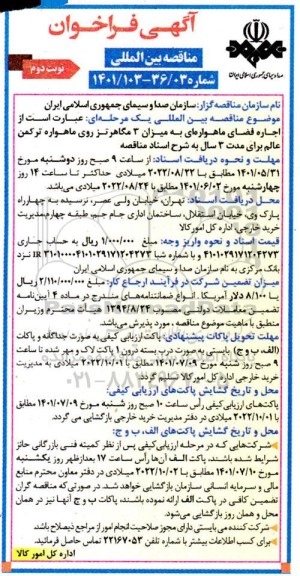 آگهی فراخوان
مناقصه بین المللی
شماره ۱۴۰۱/۱۰۳-۳۶/۰۳
نوبت دوم
صدا و سیمای جمهوری اسلامی ایران
نام سازمان مناقصه گزار: سازمان صدا و سیمای جمهوری اسلامی ایران
موضوع مناقصه بین المللی یک مرحله‌ای: عبارت است از
اجاره فضای ماهواره‌ای به میزان ۳ مگاهرتز روی ماهواره ترکمن
عالم برای مدت ۳ سال به شرح اسناد مناقصه
مهلت و نحوه دریافت اسناد: از ساعت ۹ صبح روز دوشنبه مورخ
۱۴۰۱/۰۵/۳۱ مطابق با ۲۰۲۲/۰۸/۲۲ میلادی حداکثر تا ساعت ۱۴ روز
چهارشنبه مورخ ۱۴۰۱/۰۶/۰۲ مطابق با ۲۰۲۲/۰۸/۲۴ میلادی می‌باشد.
محل دریافت اسناد: تهران، خیابان ولی عصر، نرسیده به چهارراه
پارک وی، خیابان استقلال، ساختمان اداری جام جم، طبقه چهارم مدیریت
خرید خارجی، اداره کل امور کالا
قیمت اسناد و نحوه واریز وجه: مبلغ ۱/۰۰۰/۰۰۰ ریال به حساب جاری
۴۱۰۱۰۲۹۱۷۱۲۰۴۲۷۳ و با شماره شبا
بانک مرکزی به نام سازمان صدا و سیمای جمهوری اسلامی ایران
میزان تضمین شرکت در فرآیند ارجاع کار: مبلغ ۲/۱۱۰/۰۰۰/۰۰۰ ریال
یا ۸/۱۰۰ دلار آمریکا. (انواع ضمانتنامه‌های مندرج در ماده ۴ آیین‌نامه
تضمین معاملات دولتی مصوب ۱۳۹۴/۸/۲۴ هیات محترم وزیران
منطبق با ماهیت موضوع مناقصه، مورد پذیرش می‌باشد.
مهلت تحویل پاکات پیشنهادی: پاکت ارزیابی کیفی به صورت جداگانه و پاکات
(الف، ب و ج)، بایستی به صورت درب بسته درون ۱ پاکت لاک و مهر شده تا ساعت
۹ صبح روز شنبه مورخ ۱۴۰۱/۰۷/۰۹ مطابق با ۲۰۲۲/۱۰/۰۱ میلادی به مدیریت
خرید خارجی اداره کل امور کالا تسلیم گردد.
محل و تاریخ گشایش پاکت‌های ارزیابی کیفی:
پاکت‌های ارزیابی کیفی رأس ساعت ۱۰ صبح روز شنبه مورخ ۱۴۰۱/۰۷/۰۹ مطابق
با ۲۰۲۲/۱۰/۰۱ میلادی در دفتر مدیریت خرید خارجی بازگشایی می گردد.
محل و تاریخ گشایش پاکت‌های الف، ب و ج:
شرکت‌هایی که در مرحله ارزیابی کیفی پس از نظر کمیته فنی بازرگانی حائز
شرایط شده باشند، پاکت الف آن‌ها رأس ساعت ۱۷ بعدازظهر روز یکشنبه
مورخ ۱۴۰۱/۰۷/۱۰ مطابق با ۲۰۲۲/۱۰/۰۲ میلادی در دفتر معاون محترم منابع
مالی و سرمایه انسانی سازمان بازگشایی خواهد شد. در صورتی که مناقصه گران
تضمین کافی در پاکت الف ارائه نموده باشند، پاکات ب و ج آنها نیز در همان
محل و همان روز بازگشایی می‌شود.
شرکت کننده می بایستی دارای مجوز صلاحیت انجام امور از مراجع ذیصلاح باشد.
برای کسب اطلاعات بیشتر با شماره تلفن ۲۲۱۶۷۰۵۳ تماس حاصل فرمایید.
اداره کل امور کالا